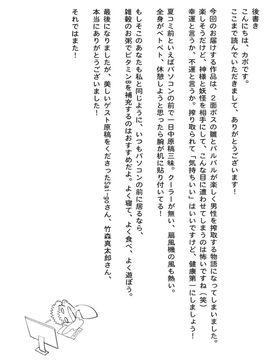 後書き
こんにちは、カボです。
ここまで読んでいただきまして、ありがとうございます！
今回のお届けする作品は、２面ボスの雛とパルパルが楽しく男性を搾取する物語になってしまいました。
楽しそうだけど、神様と妖怪を相手にして、こんな目に遭わせてしまうのは怖いですね（笑）
幸と言うか、不運と言うか。搾り取られて「気持ちいい」はいいですけど、健康第一にしましょう！
夏コミ前といえばパソコンの前で一日中原稿三昧。クーラーが無い、扇風機の風も熱い。
全身がベトベト、休憩しようと思ったら腕が机に貼り付いてる！
もしそこのあなたも私と同じように、いつもパソコンの前に居るなら、
雑穀のお粥でビタミンBを補充するのはおすすめだよ。よく寝て、よく食べ、よく遊ぼう。
最後になりましたが、美しいゲスト原稿をくださったSai-goさん、竹森真太郎さん、
本当にありがとうございました！
それではまた！